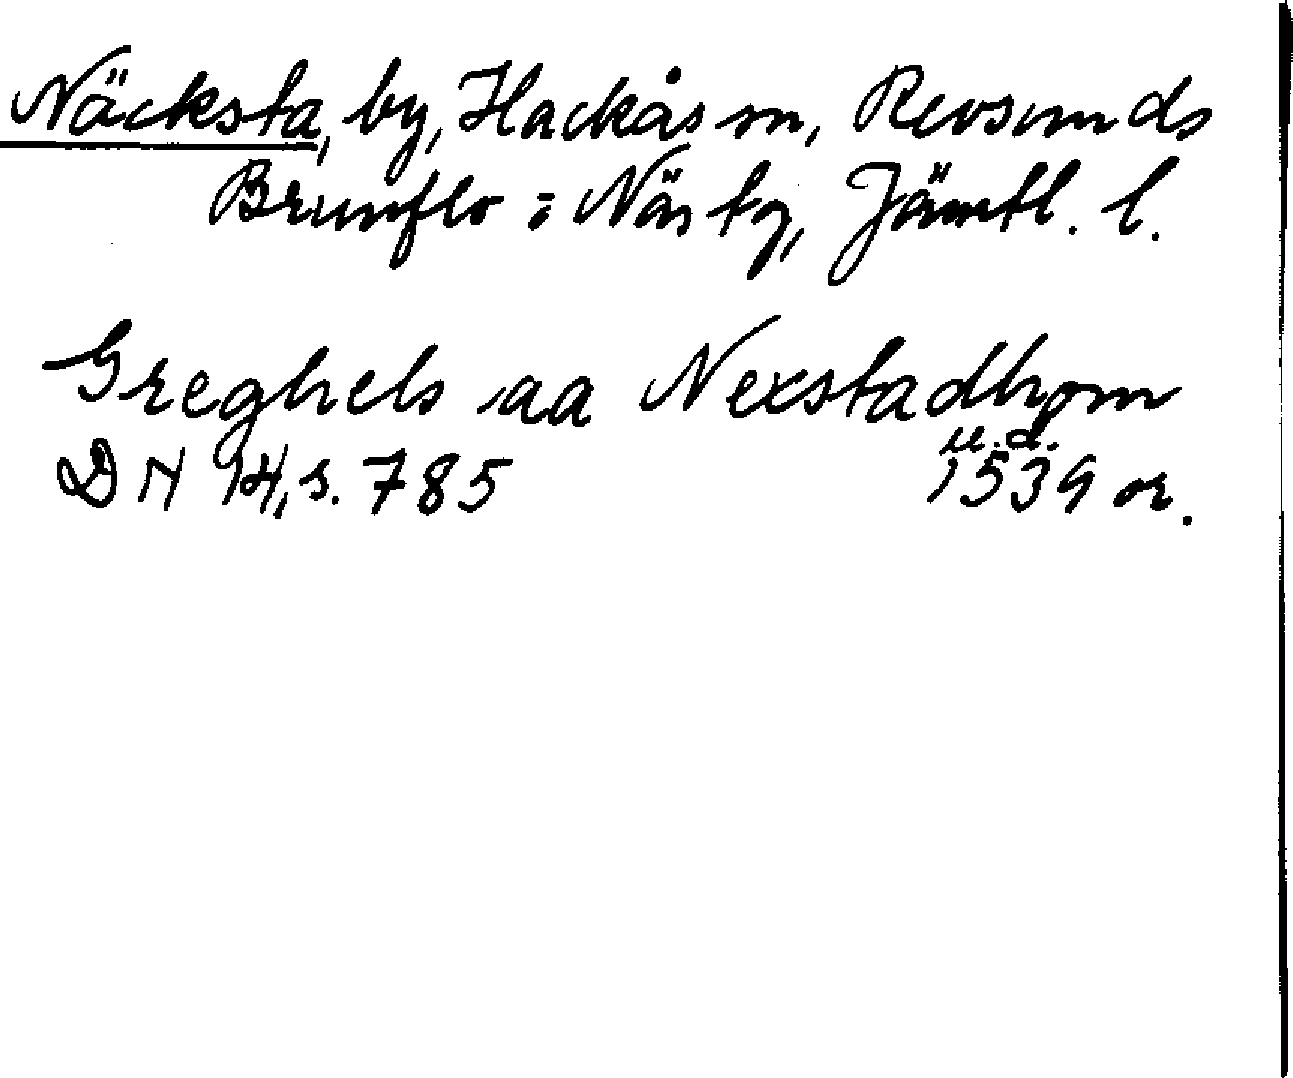 Näcksta, by, Hackås sn, Revsunds
Brunflo o Näs tg, Jämtl. l.
Greghels aa Nexstadhom
u.d.
DN 14, s. 785 1539 or.